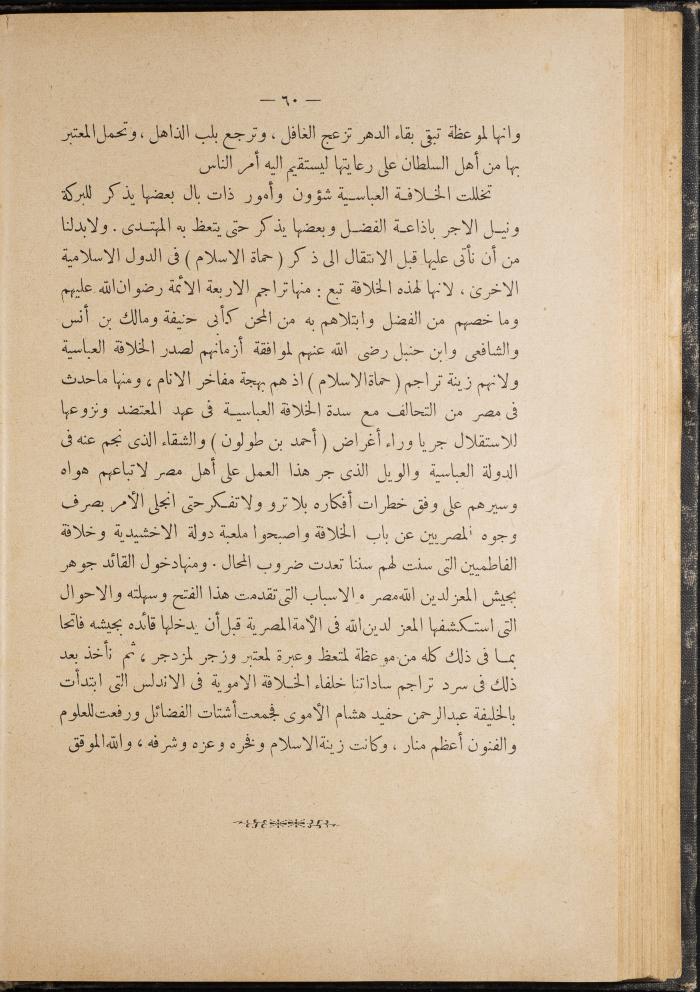 — ٦٠ —
وانها لموعظة تبقى بقاء الدهر تزعج الغافل ، وترجع بلب الذاهل ، وتحمل المعتبر
بها من أهل السلطان على رعايتها ليستقيم اليه أمر الناس
تخللت الخلافة العباسية شؤون وأمور ذات بال بعضها يذكر للبركة
ونيل الاجر باذاعة الفضل وبعضها يذكر حتى يتعظ به المهتدى . ولا بدلنا
من أن نأتى عليها قبل الانتقال الى ذكر ( حماة الاسلام ) فى الدول الاسلامية
الاخرى ، لانها لهذه الخلافة تبع : منها تراجم الاربعة الأئمة رضوان الله عليهم
وما خصهم من الفضل وابتلاهم به من المحن كأبى حنيفة ومالك بن أنس
والشافعى وابن حنبل رضى الله عنهم لموافقة أزمانهم لصدر الخلافة العباسية
ولانهم زينة تراجم ( حماة الاسلام ) اذ هم بهجة مفاخر الانام ، ومنها ماحدث
فى مصر من التحالف مع سدة الخلافة العباسية فى عهد المعتضد ونزوعها
للاستقلال جريا وراء أغراض ( أحمد بن طولون ) والشقاء الذى نجم عنه فى
الدولة العباسية والويل الذى جر هذا العمل على أهل مصر لاتباعهم هواه
وسيرهم على وفق خطرات أفكاره بلا ترو ولا تفكر حتى انجلى الأمر بصرف
وجوه المصريين عن باب الخلافة واصبحوا ملعبة دولة الاخشيدية وخلافة
الفاطميين التى سنت لهم سننا تعدت ضروب المحال . ومنها دخول القائد جوهر
بجيش المعز لدين الله مصر والاسباب التى تقدمت هذا الفتح وسهلته والاحوال
التى استكشفها المعز لدين الله فى الأمة المصرية قبل أن يدخلها قائده بجيشه فاتحا
بما فى ذلك كله من موعظة لمتعظ وعبرة لمعتبر وزجر لمزدجر ، ثم نأخذ بعد
ذلك فى سرد تراجم ساداتنا خلفاء الخلافة الاموية فى الاندلس التى ابتدأت
بالخليفة عبدالرحمن حفيد هشام الأموى فجمعت أشتات الفضائل ورفعت للعلوم
والفنون أعظم منار ، وكانت زينة الاسلام وفخره وعزه وشرفه ، والله الموفق